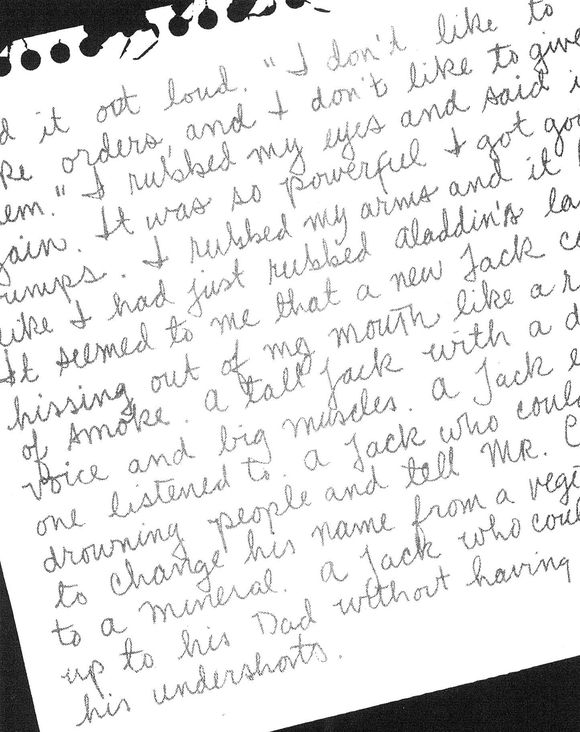 d it out loud. "I don't like to
ke orders, and I don't like to give
em." I rubbed my eyes and said i
gain. It was so powerful I got goo
umps. I rubbed my arms and it
like I had just rubbed aladdin's la
It seemed to me that a new Jack co
hissing out of my mouth like a r
of smoke. a tall Jack with a d
voice and big muscles. a Jack e
one listened to. a Jack who could
drowning people and tell MR. C
to change his name from a vege
to a mineral. a Jack who coul
up to his Dad without having
his undershorts.